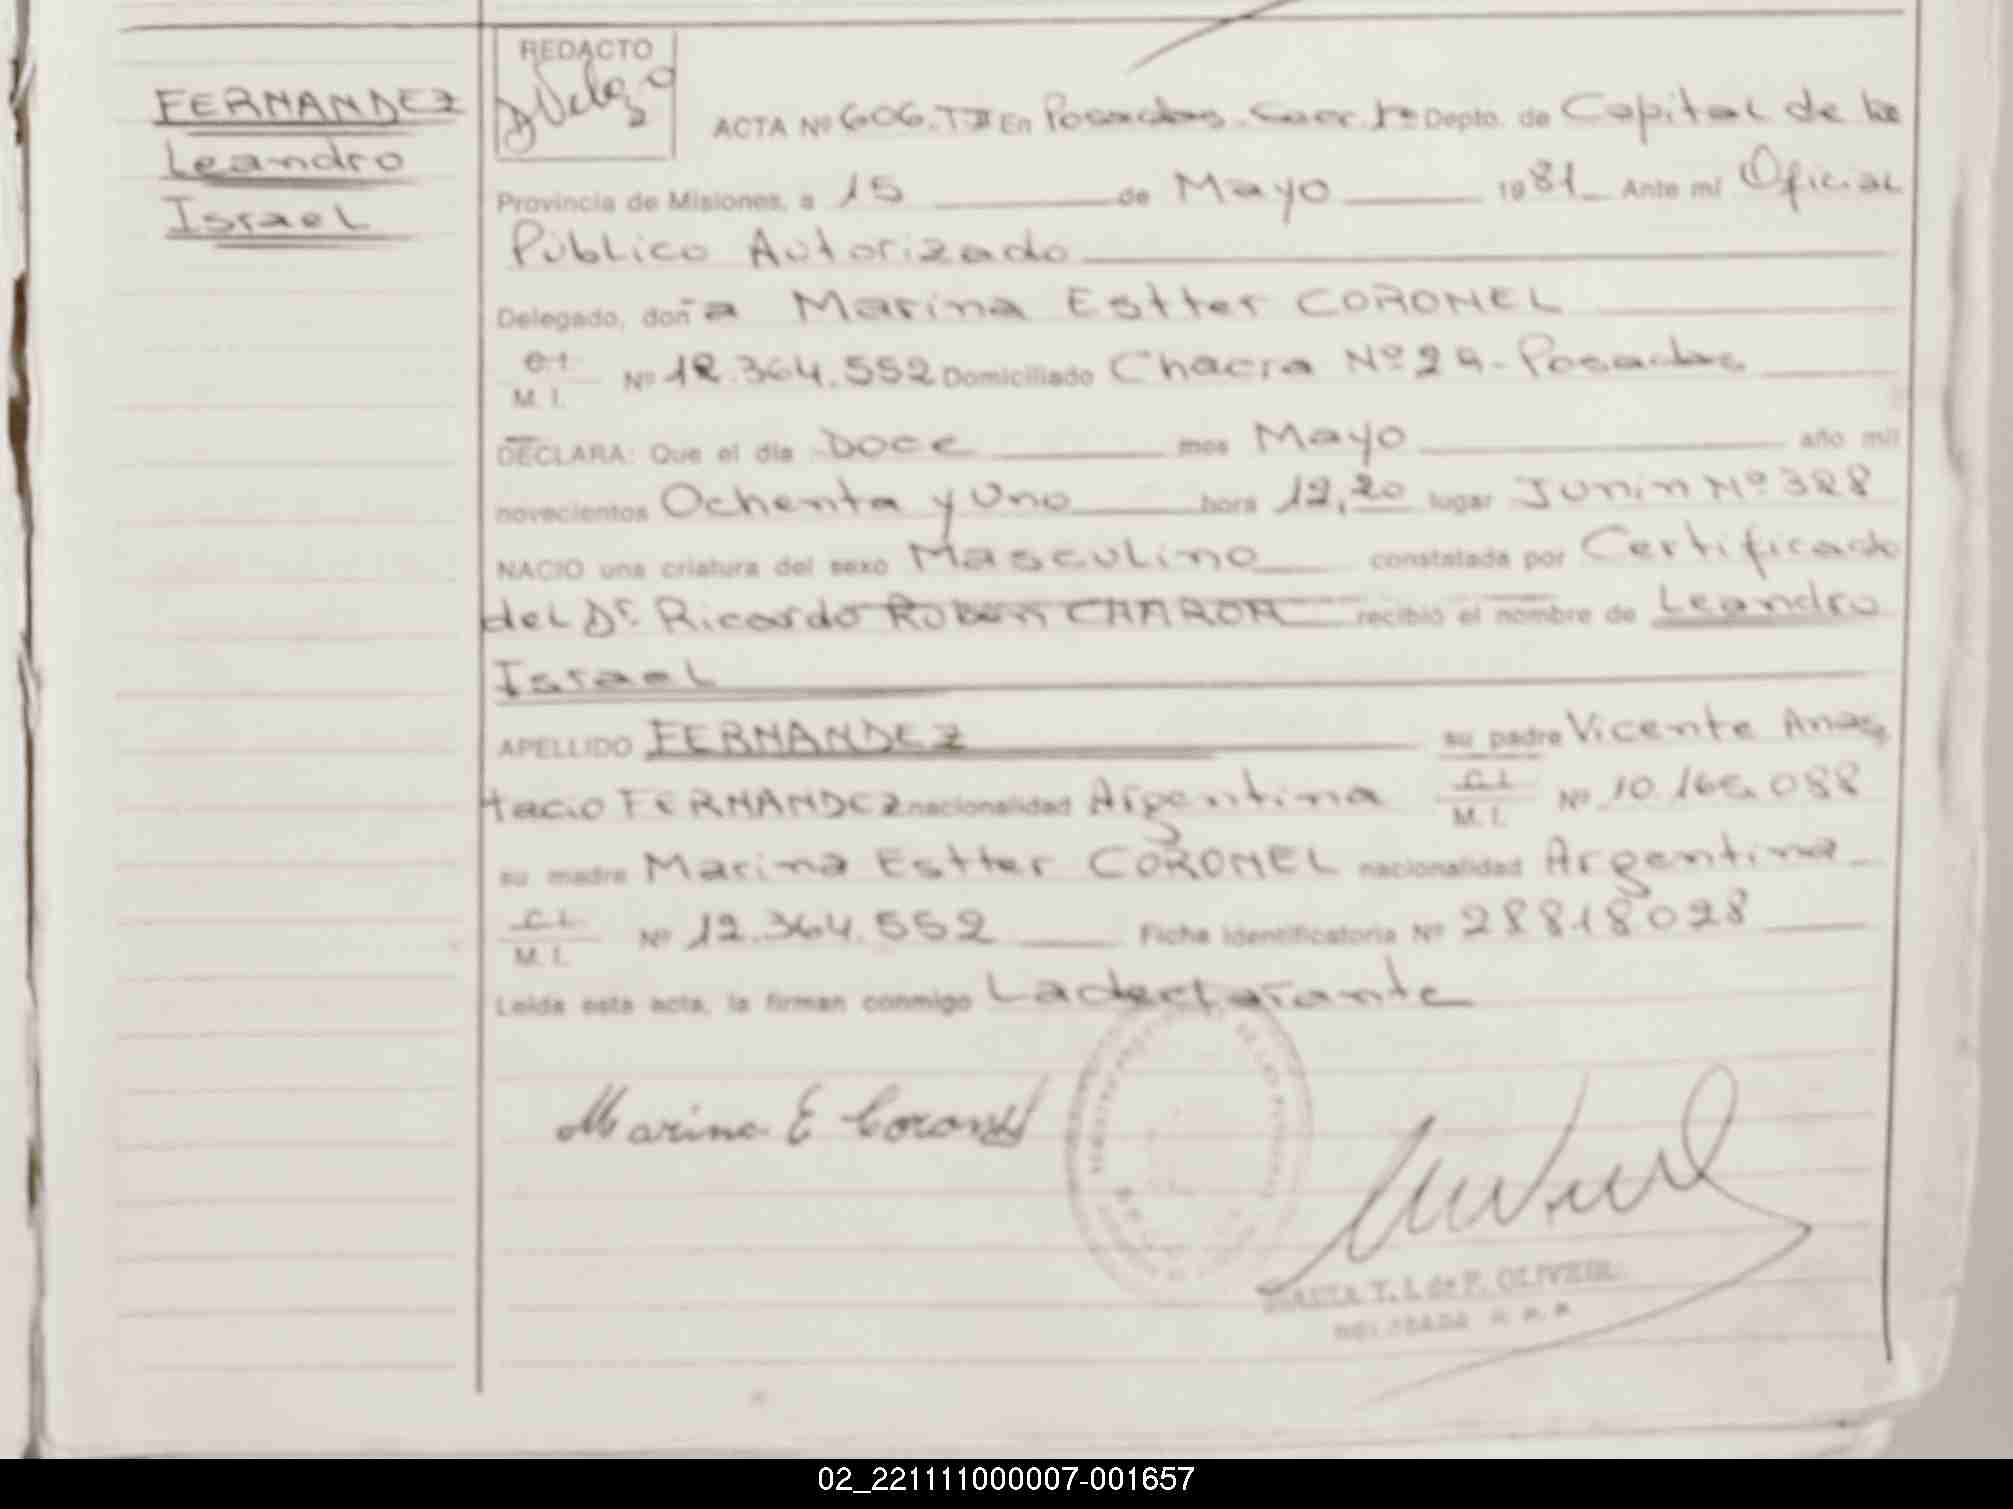 FERNANDEZ
Leandro
Israel
REDACTO
ACTA Nº 606. TII En Posadas. Secc. 1ª Depto. de Capital de la
Provincia de Misiones, a 15 de Mayo 1981 Ante mí Oficial
Público Autorizado
Delegado, doña Marina Estter CORONEL
M. I. Nº 12.364.552 Domiciliado Chacra Nº 29 - Posadas
DECLARA: Que el día Doce mes Mayo año mil
novecientos Ochenta y Uno hora 12,20 lugar Junin Nº 328
NACIO una criatura del sexo Masculino constatada por Certificado
del Dr. Ricardo Ruben recibió el nombre de Leandro
Israel
APELLIDO FERNANDEZ su padre Vicente Anas
tacio FERNANDEZ nacionalidad Argentina C.I. M. I. Nº 088
su madre Marina Estter CORONEL nacionalidad Argentina
C.I. M. I. Nº 12.364.552 Ficha identificatoria Nº 28818028
Leída esta acta, la firman conmigo La declarante
Marina E Coronel
T. I. de P. OLIVERA
DELEGADA
02_221111000007-001657